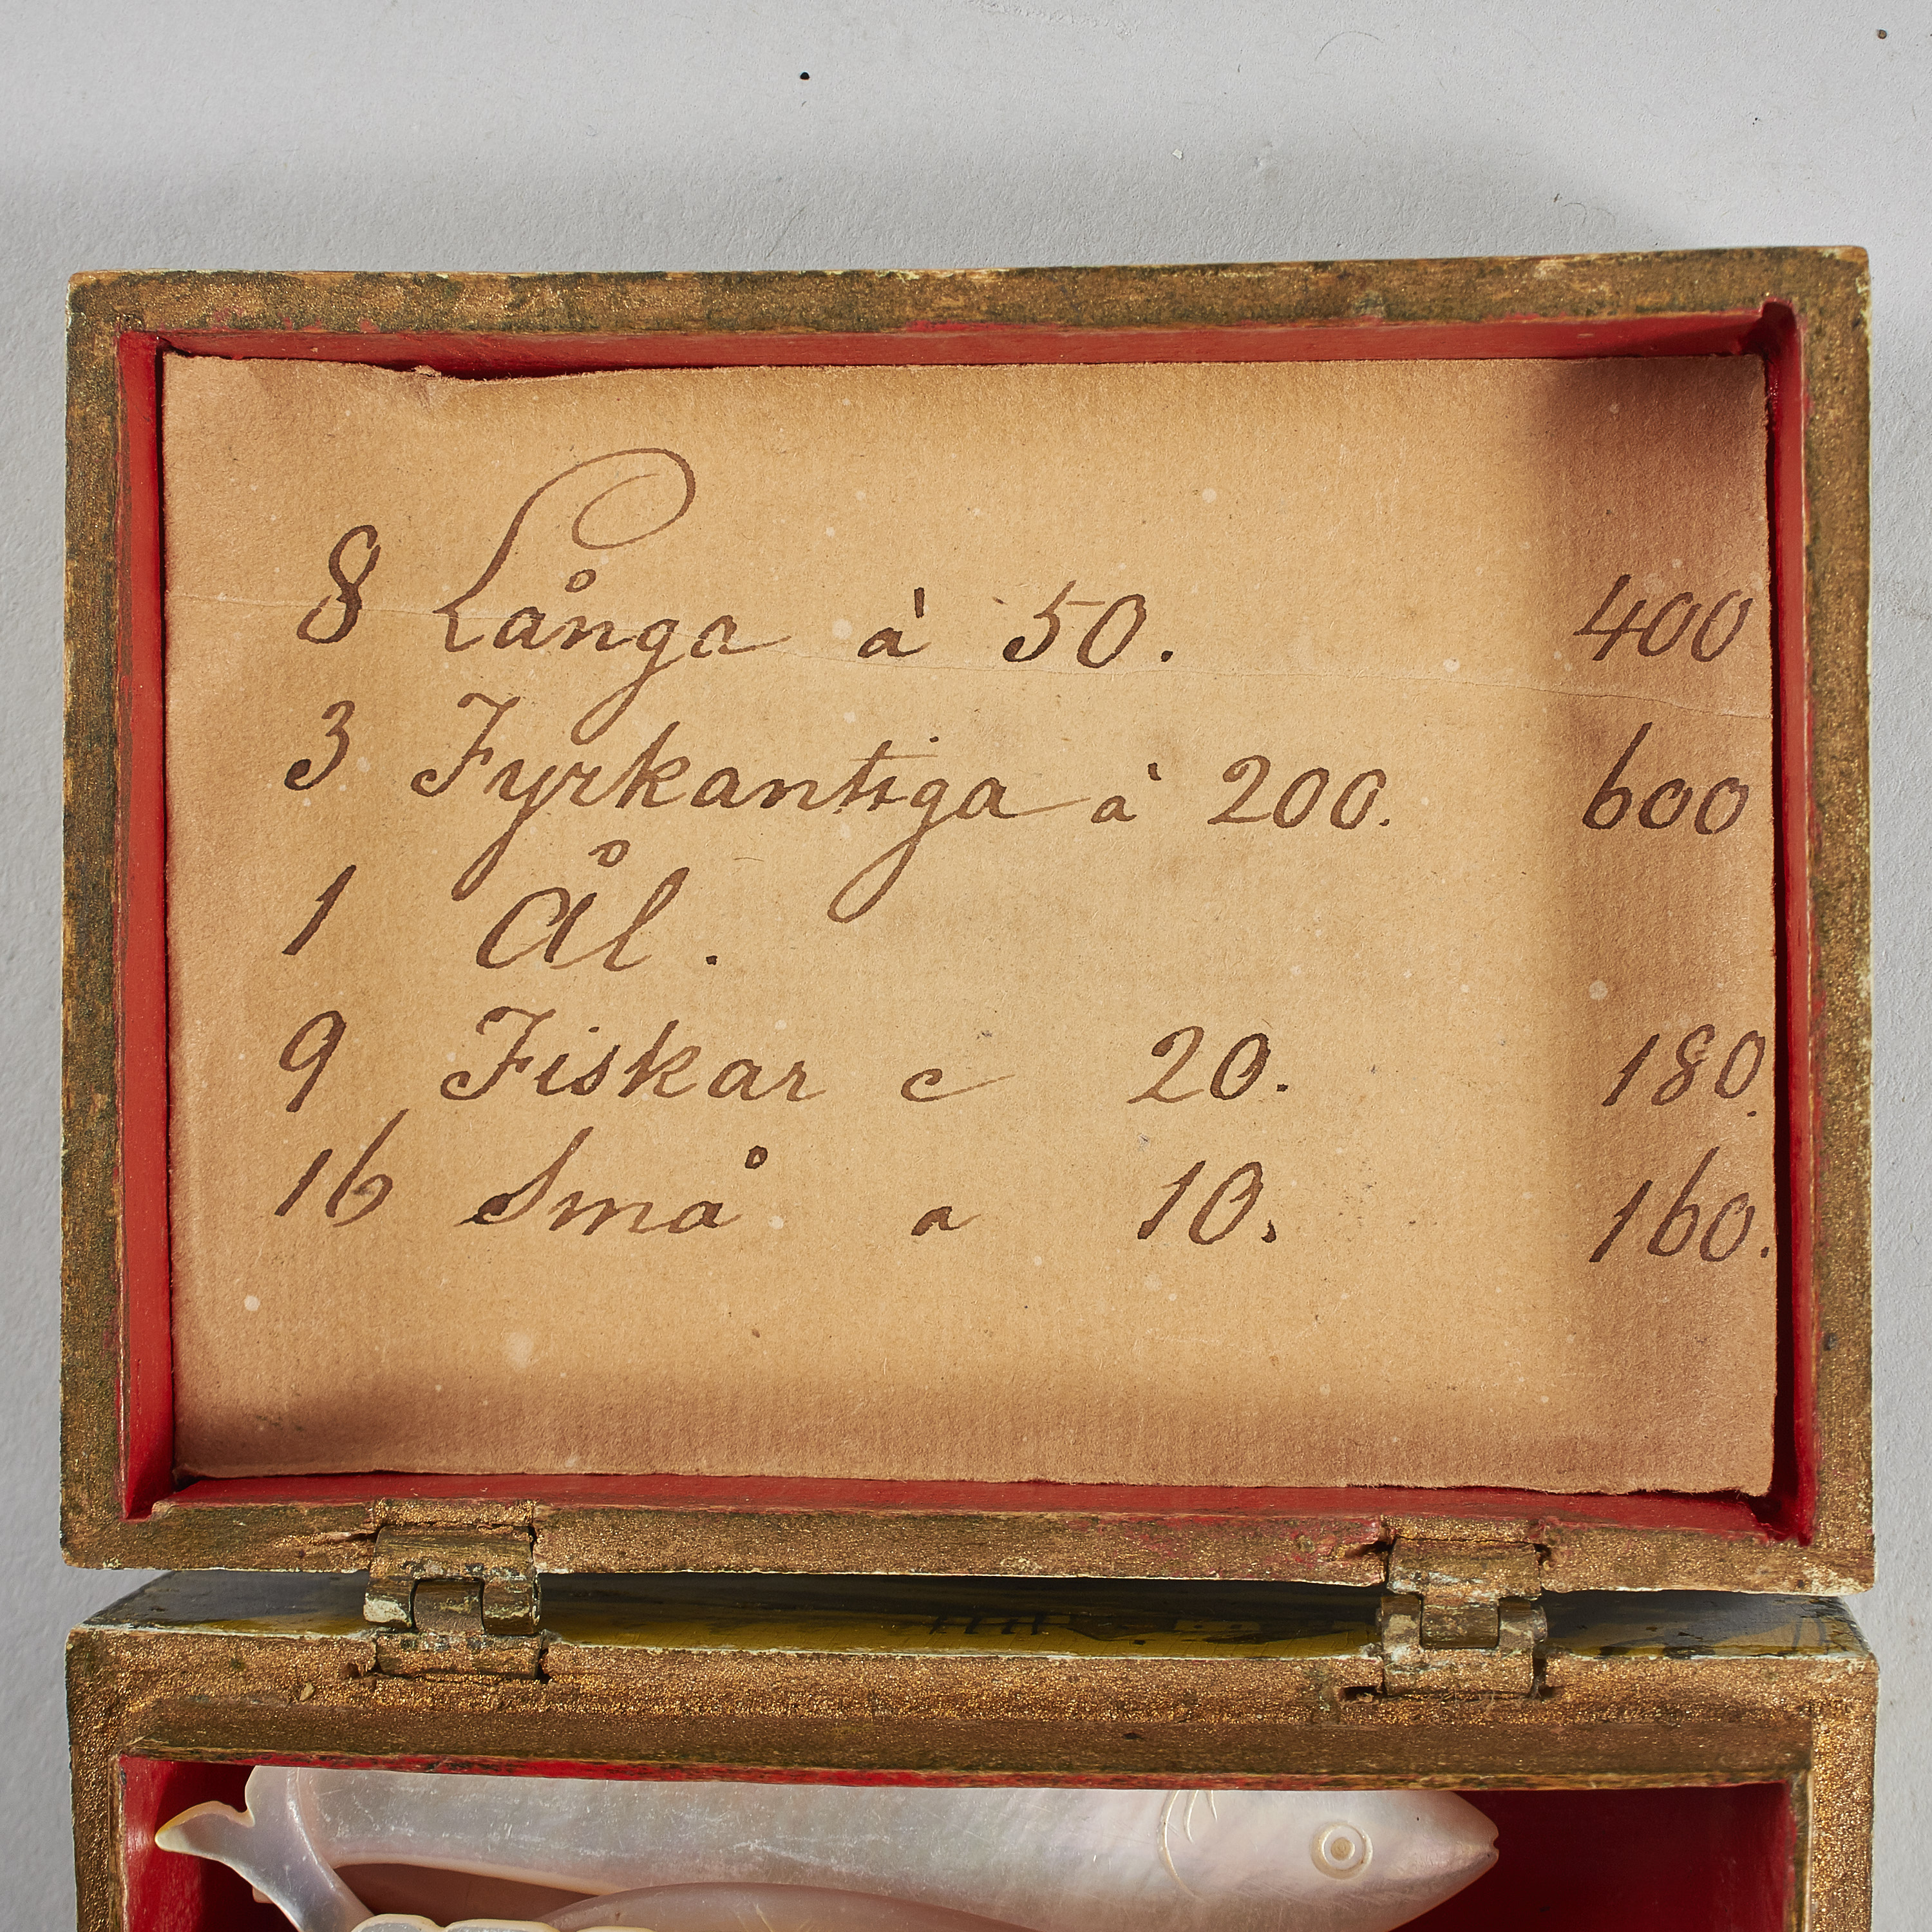 8 Långa à 50. 400
3 Fyrkantiga à 200. 600
1 Ål.
9 Fiskar c 20. 180.
16 Små a 10. 160.